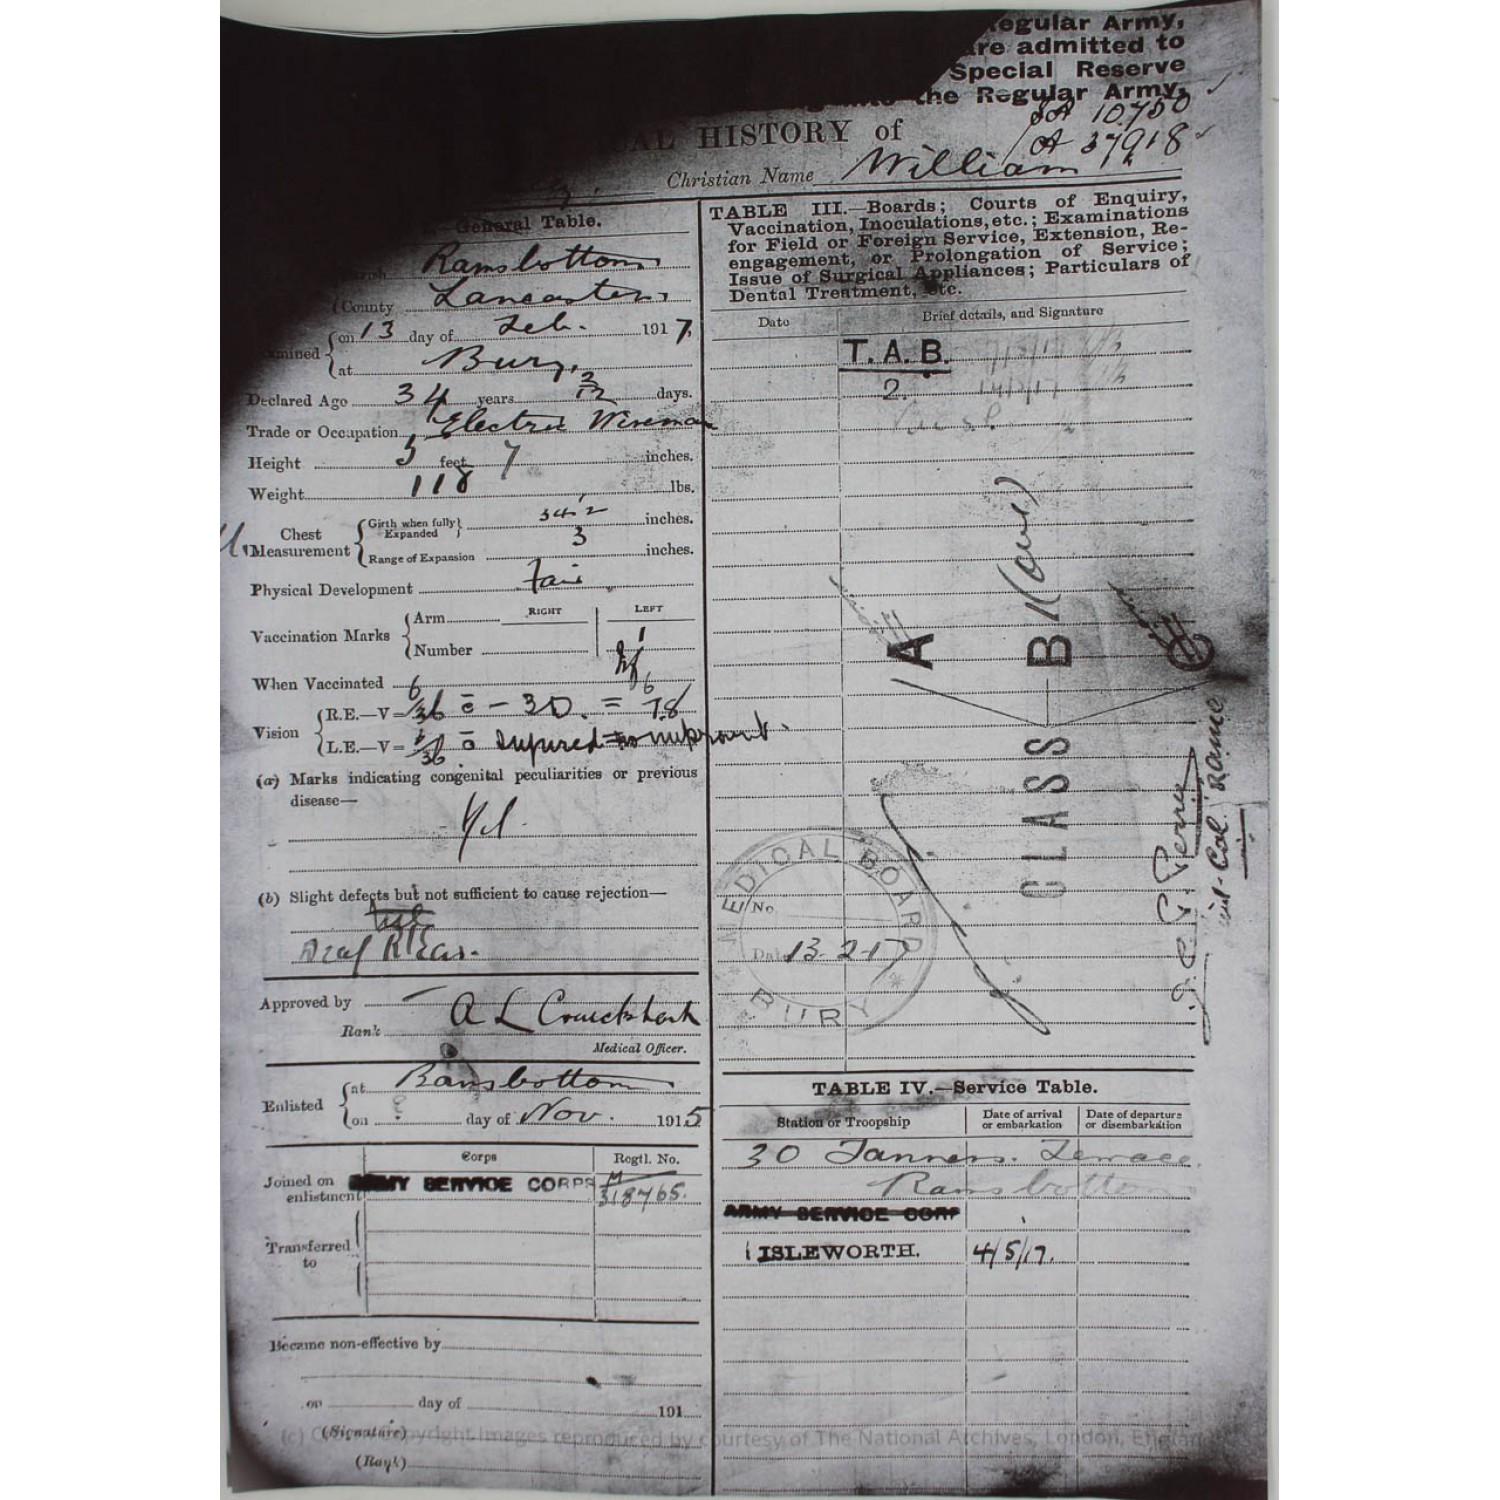 egular Army,
are admitted to
Special Reserve
the Regular Army,
A 10,750
A 37918
AL HISTORY of
Christian Name William
General Table.
Ramsbottom
County Lancaster
on 13 day of Feb. 1917,
at Bury,
Declared Age 34 years 2/12 days.
Trade or Occupation Electric Wireman
Height 5 feet 7 inches.
Weight 118 lbs.
Chest Measurement
Girth when fully Expanded 34 1/2 inches.
Range of Expansion 3 inches.
Physical Development Fair
RIGHT LEFT
Vaccination Marks
Arm 1
Number
When Vaccinated
Vision
R.E.—V= 6/36 c̄ - 3D. = 6/18
L.E.—V= 6/36 c̄
(a) Marks indicating congenital peculiarities or previous
disease—
(b) Slight defects but not sufficient to cause rejection—
Deaf R Ear.
Approved by A L
Rank
Medical Officer.
Enlisted
at Ramsbottom
on ? day of Nov. 1915
Corps Regtl. No.
Joined on enlistment ARMY SERVICE CORPS M 318765.
Transferred to
Became non-effective by
on day of 191
(Signature)
(Rank)
TABLE III.—Boards; Courts of Enquiry,
Vaccination, Inoculations, etc.; Examinations
for Field or Foreign Service, Extension, Re-
engagement, or Prolongation of Service;
Issue of Surgical Appliances; Particulars of
Dental Treatment, etc.
Date Brief details, and Signature
T. A. B.
2.
A
B 1
C
CLASS
MEDICAL BOARD
No.
Date 13-2-17
BURY
TABLE IV.—Service Table.
Station or Troopship Date of arrival or embarkation Date of departure or disembarkation
30 Tanners. Terrace.
Ramsbottom
ARMY SERVICE CORP
ISLEWORTH. 4/5/17.
Copyright Images reproduced by courtesy of The National Archives, London, England